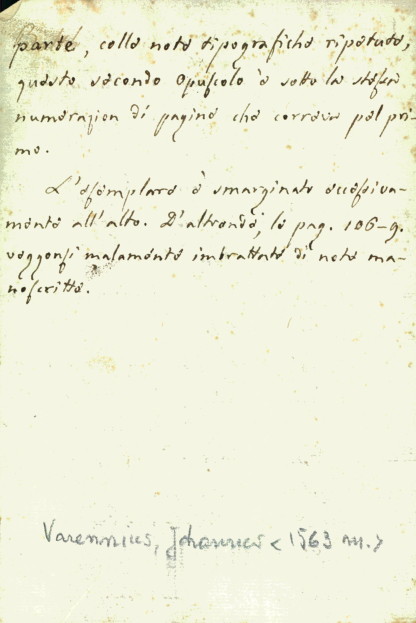 parte, colle note tipografiche ripetute,
questo secondo Opuscolo è sotto la stessa
numerazion di pagine che correva pel pri-
mo.
L'esemplare è smarginato eccessiva-
mente all'alto. D'altronde, le pag. 106-9.
veggonsi malamente imbrattate di note ma-
noscritte.
Varennius, Johannes < 1563 m. >